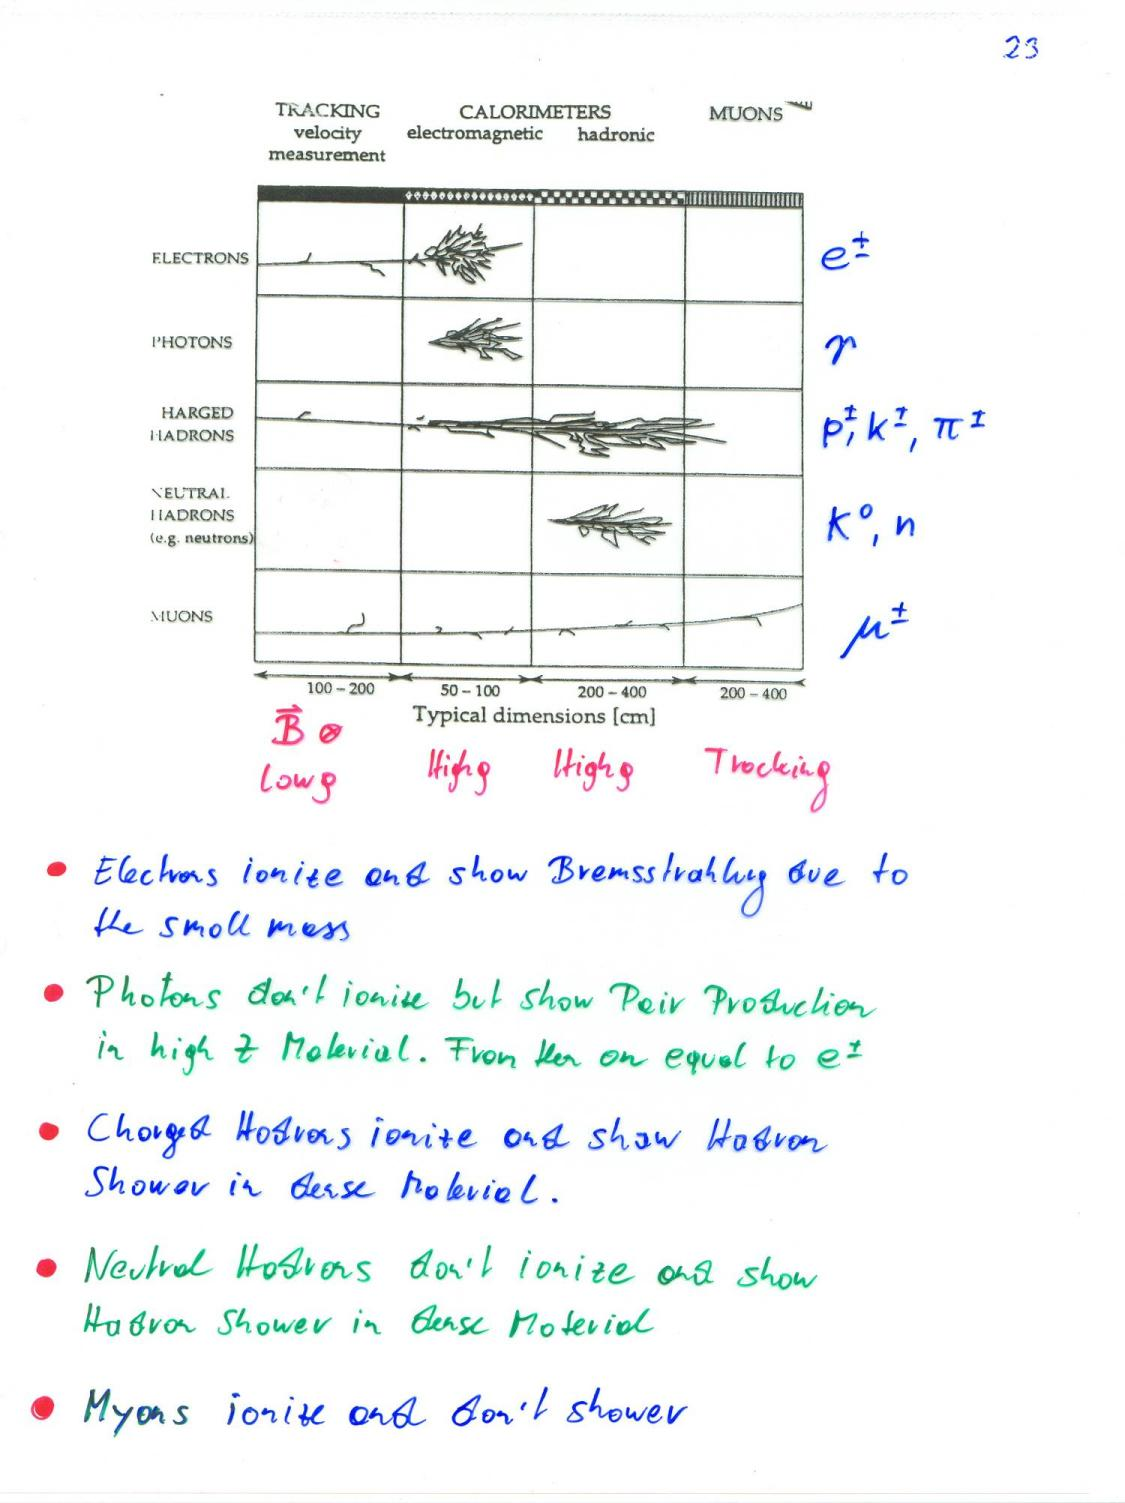 23
TRACKING CALORIMETERS MUONS
velocity electromagnetic hadronic
measurement
ELECTRONS e±
PHOTONS γ
HARGED
HADRONS p±, k±, π±
NEUTRAL
HADRONS K⁰, n
(e.g. neutrons)
MUONS μ±
100 – 200 50 – 100 200 – 400 200 – 400
Typical dimensions [cm]
B⃗ ⊗
Low ρ High ρ High ρ Tracking
• Electrons ionize and show Bremsstrahlung due to
the small mass
• Photons don't ionize but show Pair Production
in high Z Material. From then on equal to e±
• Charged Hadrons ionize and show Hadron
Shower in dense Material.
• Neutral Hadrons don't ionize and show
Hadron Shower in dense Material
• Myons ionize and don't shower